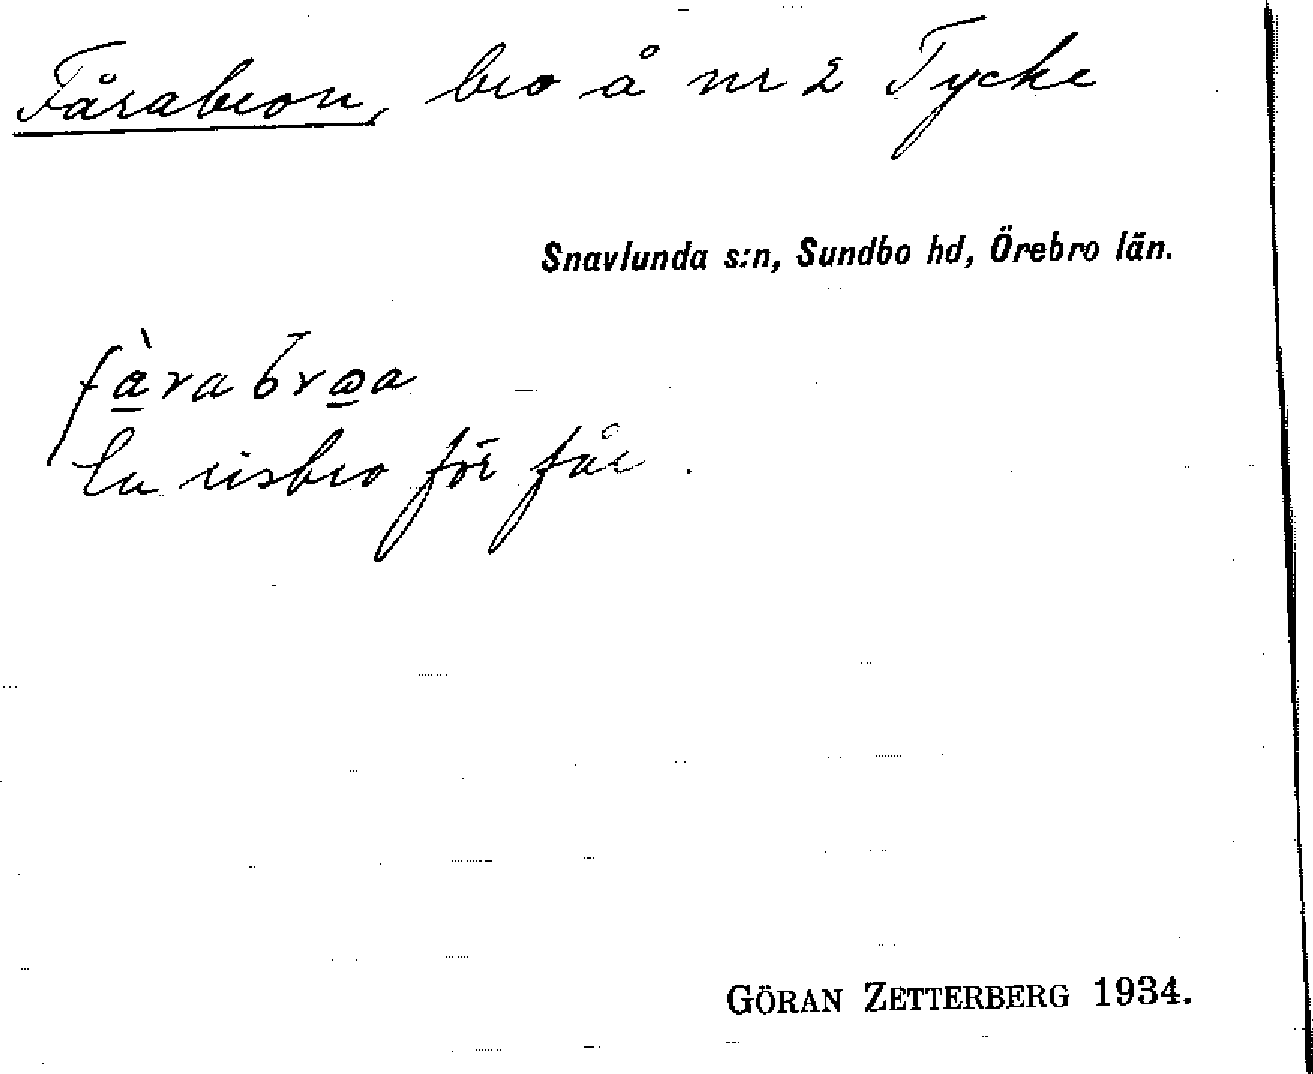 Fårabron, bro å nr 2 Tycke
Snavlunda s:n, Sundbo hd, Örebro län.
fàrabrꝏa
En risbro för får.
GÖRAN ZETTERBERG 1934.